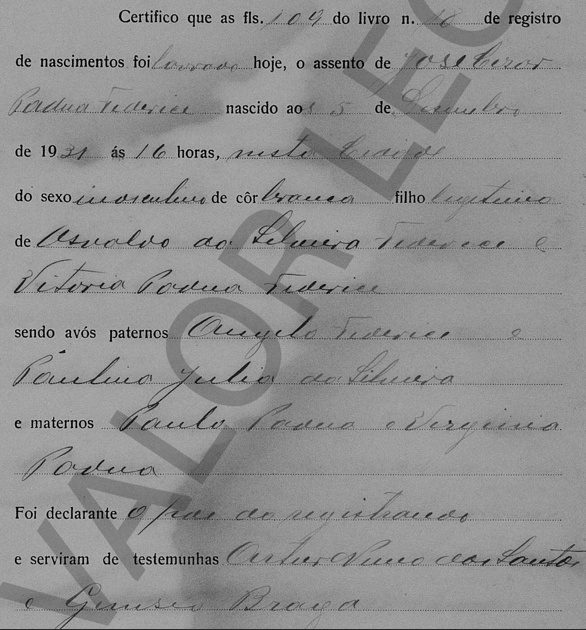 Certifico que as fls. 109 do livro n. 18 de registro
de nascimentos foi lavrado hoje, o assento de José Cezar
Padua Federice nascido aos 5 de
de 1931 ás 16 horas, nesta Cidade
do sexo masculino de côr branca filho legitimo
de Osvaldo da Silveira Federice e
Vitoria Padua Federice
sendo avós paternos Angelo Federice e
Paulina Julia da Silveira
e maternos Paulo Padua e Verginia
Padua
Foi declarante O pai do registrando
e serviram de testemunhas dos Santos
e Braga
VALOR LEG